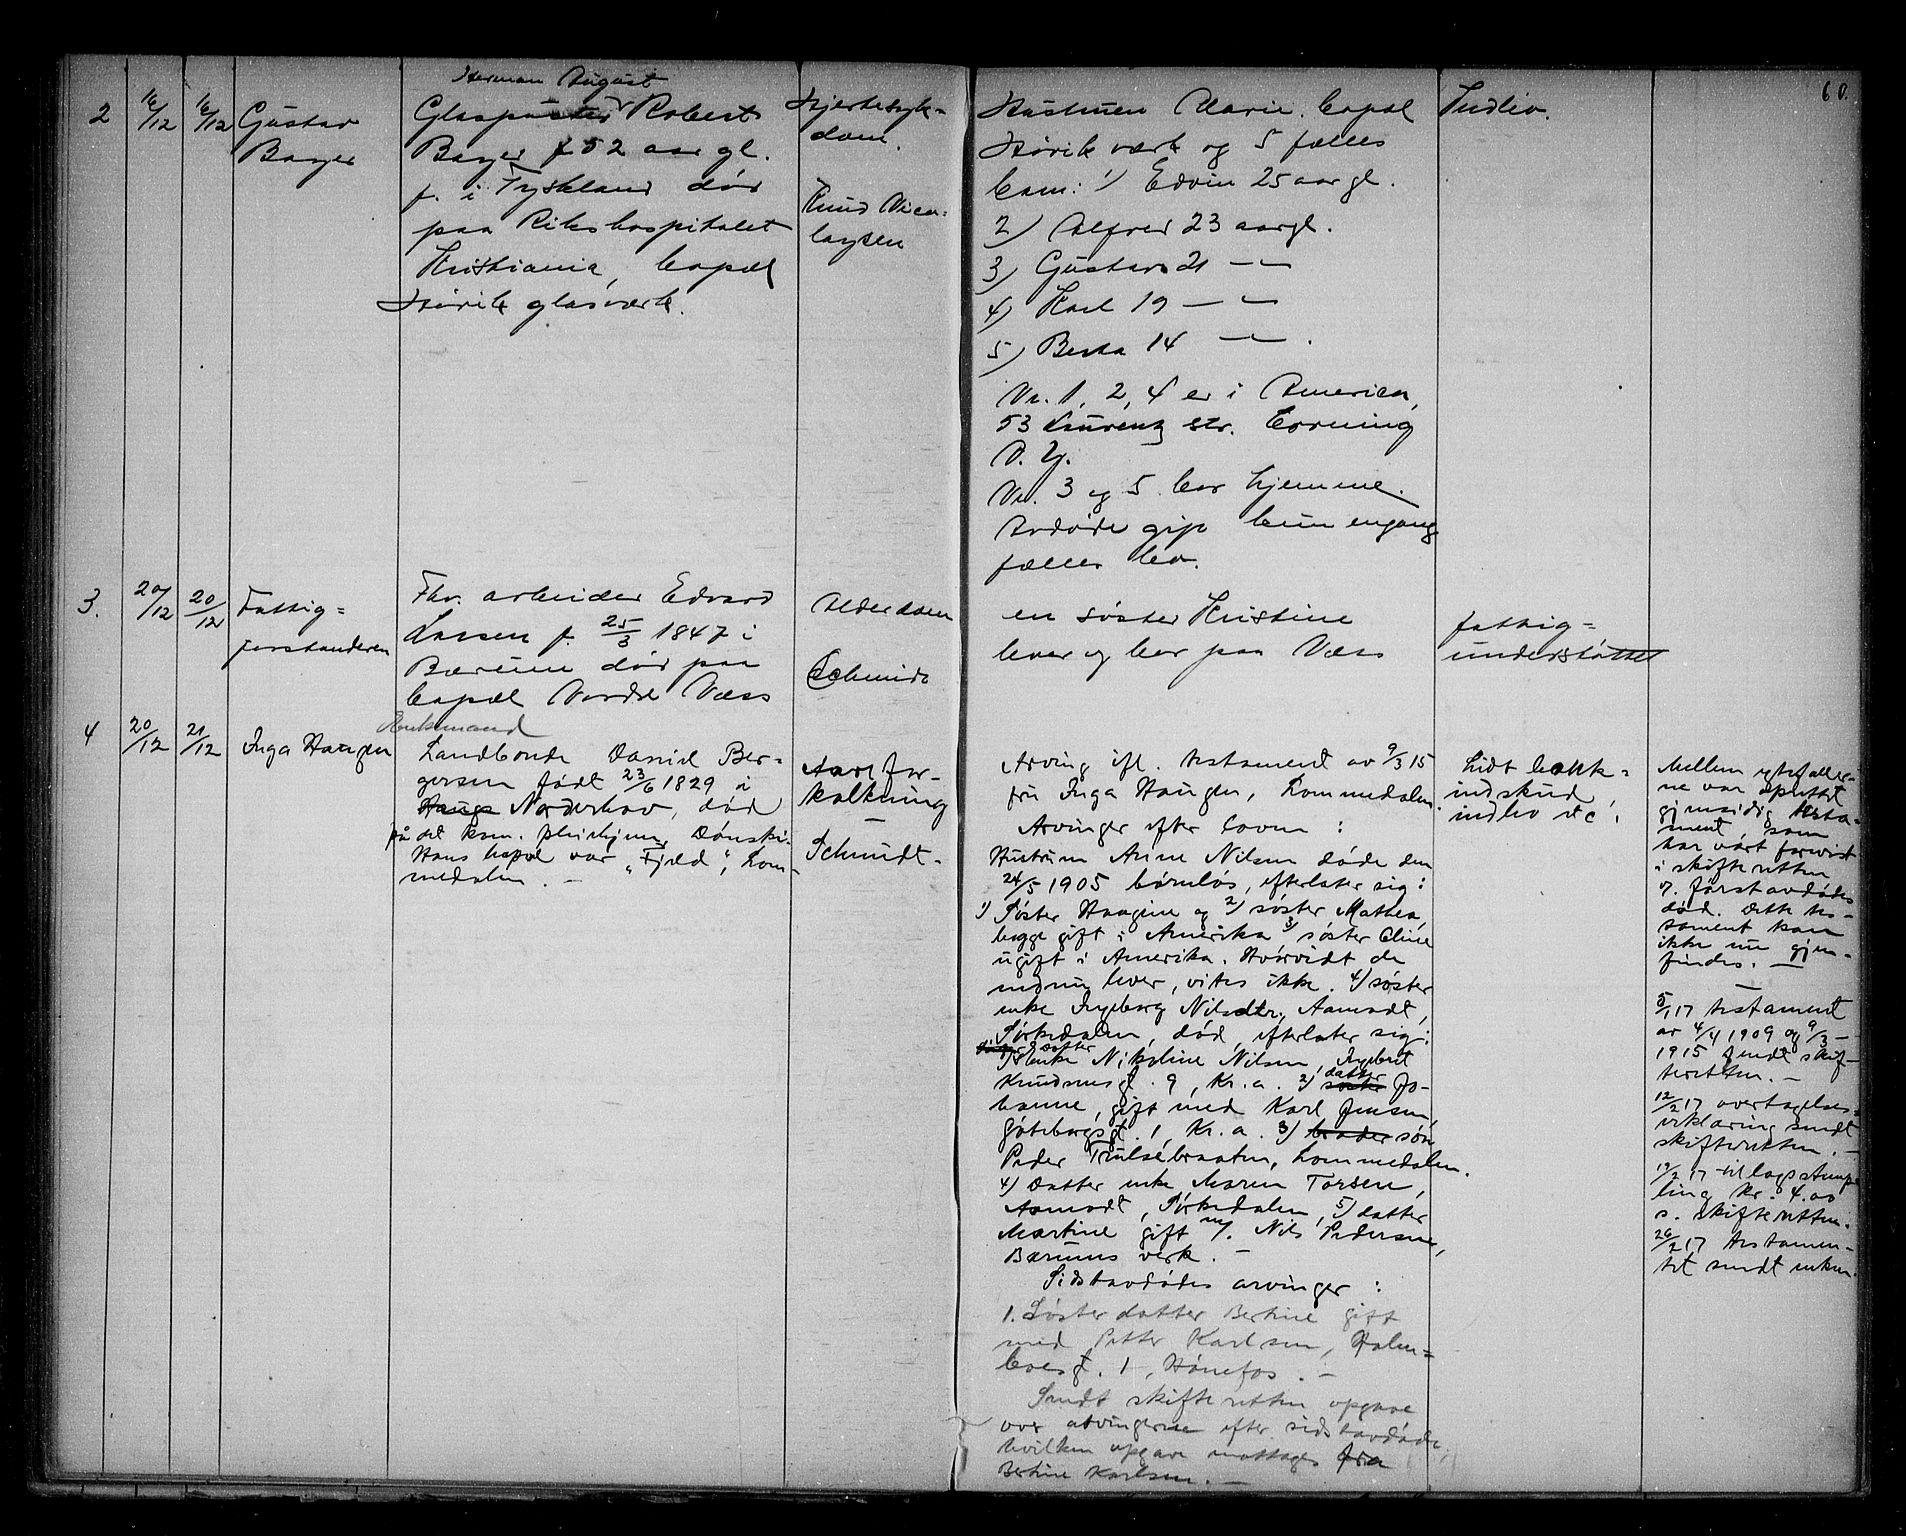 60.
2
16/12
16/12
Gustav
Bayer
Herman August
Glaspuster Robert
Bayer f. 52 aar gl.
f. i Tyskland død
paa Rikshospitalet
Kristiania, bopæl
Høvik glasværk.
Hjertesyk=
dom.
Knud Nico-
laysen
Hustruen Marie. bopæl
Høvik værk og 5 fælles
barn: 1) Edvin 25 aar gl.
2) Alfred 23 aar gl.
3) Gustav 21 — " —
4) Karl 19 — " —
5) Berta 14 — " — .
Nr. 1, 2, 4 er i America,
53 str. Corning
N. Y.
Nr. 3 og 5 bor hjemme.
Avdøde gift kun engang
fælles bo.
Indbo.
3.
20/12
20/12
Fattig=
forstanderen
Fhv. arbeider Edvard
Larsen f. 25/3 1847 i
Bærum død paa
bopæl Nordre Næss
Alderdom
Schmidt
en søster Kristine
lever og bor paa Næss
fattig=
understøttet
4
20/12
21/12
Inga Haugen
Enkemand
Landbonde Daniel Ber=
gersen født 23/6 1829 i
Haugs Norderhov, død
på det kom. pleiehjem, Dønski.
Hans bopæl var "Fjeld", Lom-
medalen. —
Aarefor-
kalkning
—
Schmidt.
Arving ifl. testament av 9/3 15
fru Inga Haugen, Lommedalen.
Arvinger efter loven :
Hustrun Anne Nilsen døde den
24/5 1905 barnløs, efterlater sig:
1) Søster Haagine og 2) søster Mathea,
begge gift i Amerika 3) søster Oline
ugift i Amerika. Hvorvidt de
endnu lever, vites ikke. 4) søster
enke Ingeborg Nilsdtr., Aamodt,
Sørkedalen, død, efterlater sig:
1) datter Enke Nikoline Nilsen, Ingebret
Knudsensgt. 9, Kr.a. 2) søster datter Jo-
hanne, gift med Karl Jensen,
Gøteborgsgt. 1, Kr.a. 3) broder søn
Peder Trulsebraaten, Lommedalen.
4) Datter enke Maren Torsen,
Aamodt, Sørkedalen, 5) datter
Martine gift m/. Nils Pedersen,
Bærums verk. —
Sidstavdødes arvinger :
1. Søster datter Bertine gift
med Petter Karlsen, Holm=
boesgt. 1, Hønefos. —
Sendt skifteretten opgave
over arvingerne efter sidstavdøde,
hvilken opgave mottages fra
Bertine Karlsen. —
Lidt bank=
indskud,
indbo etc.
Mellem egtefæller-
ne var oprettet
gjensidig testa-
ment, som
har vært forevist
i skifteretten
v. førstavdødes
død. Dette tes-
tament kan
ikke nu gjen-
findes. —
5/1 17 testament
av 4/4 1909 og 9/3 —
1915 sendt skif-
teretten. —
12/2 17 overtagelses=
erklæring sendt
skifteretten. —
19/2 17 tillagsstemp-
ling kr. 4.00
s. skifteretten.
26/2 17 testamen-
tet sendt enken.